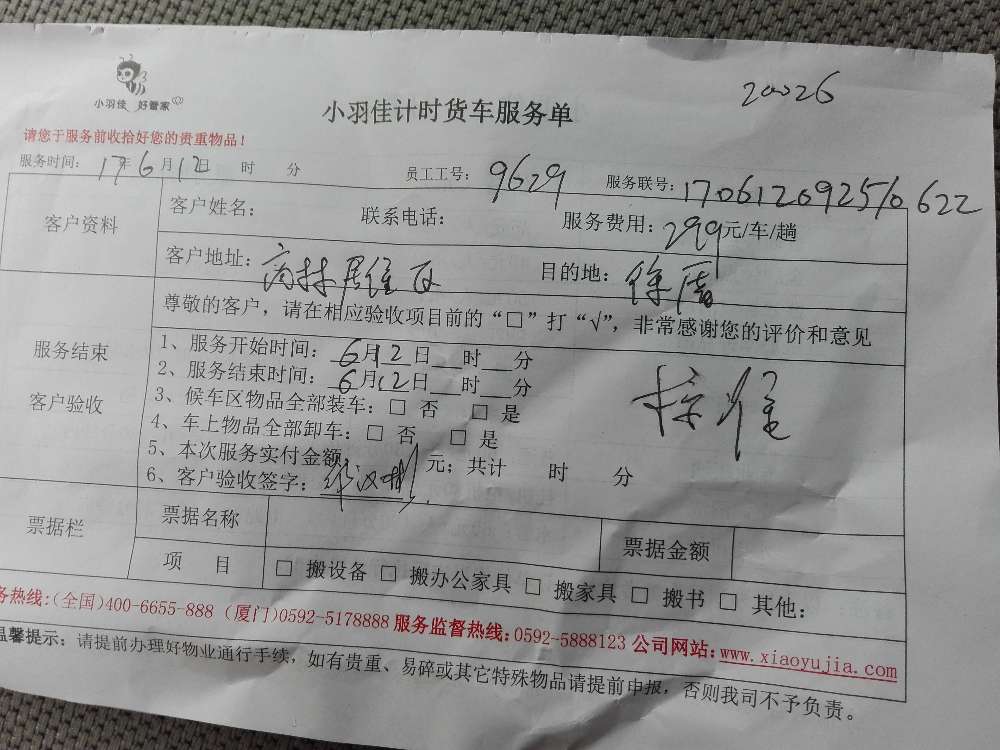 小羽佳 好管家
20026
小羽佳计时货车服务单
请您于服务前收拾好您的贵重物品！
服务时间： 17年6月12日 时 分 员工工号： 9629 服务联号：170612092510622
客户资料
客户姓名： 联系电话： 服务费用：299元/车/趟
客户地址： 目的地：
尊敬的客户，请在相应验收项目前的“□”打“√”，非常感谢您的评价和意见
服务结束
客户验收
1、服务开始时间：6月12日 时 分
2、服务结束时间：6月12日 时 分
3、候车区物品全部装车：□ 否 □ 是
4、车上物品全部卸车：□ 否 □ 是
5、本次服务实付金额 元；共计 时 分
6、客户验收签字：
票据栏
票据名称 票据金额
项 目 □ 搬设备 □ 搬办公家具 □ 搬家具 □ 搬书 □ 其他：
务热线:(全国)400-6655-888 (厦门)0592-5178888 服务监督热线:0592-5888123 公司网站:www.xiaoyujia.com
温馨提示：请提前办理好物业通行手续，如有贵重、易碎或其它特殊物品请提前申报，否则我司不予负责。